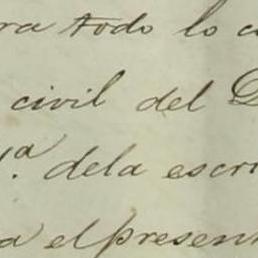 ra todo lo c
civil del D
1.ª dela escri
a el presen